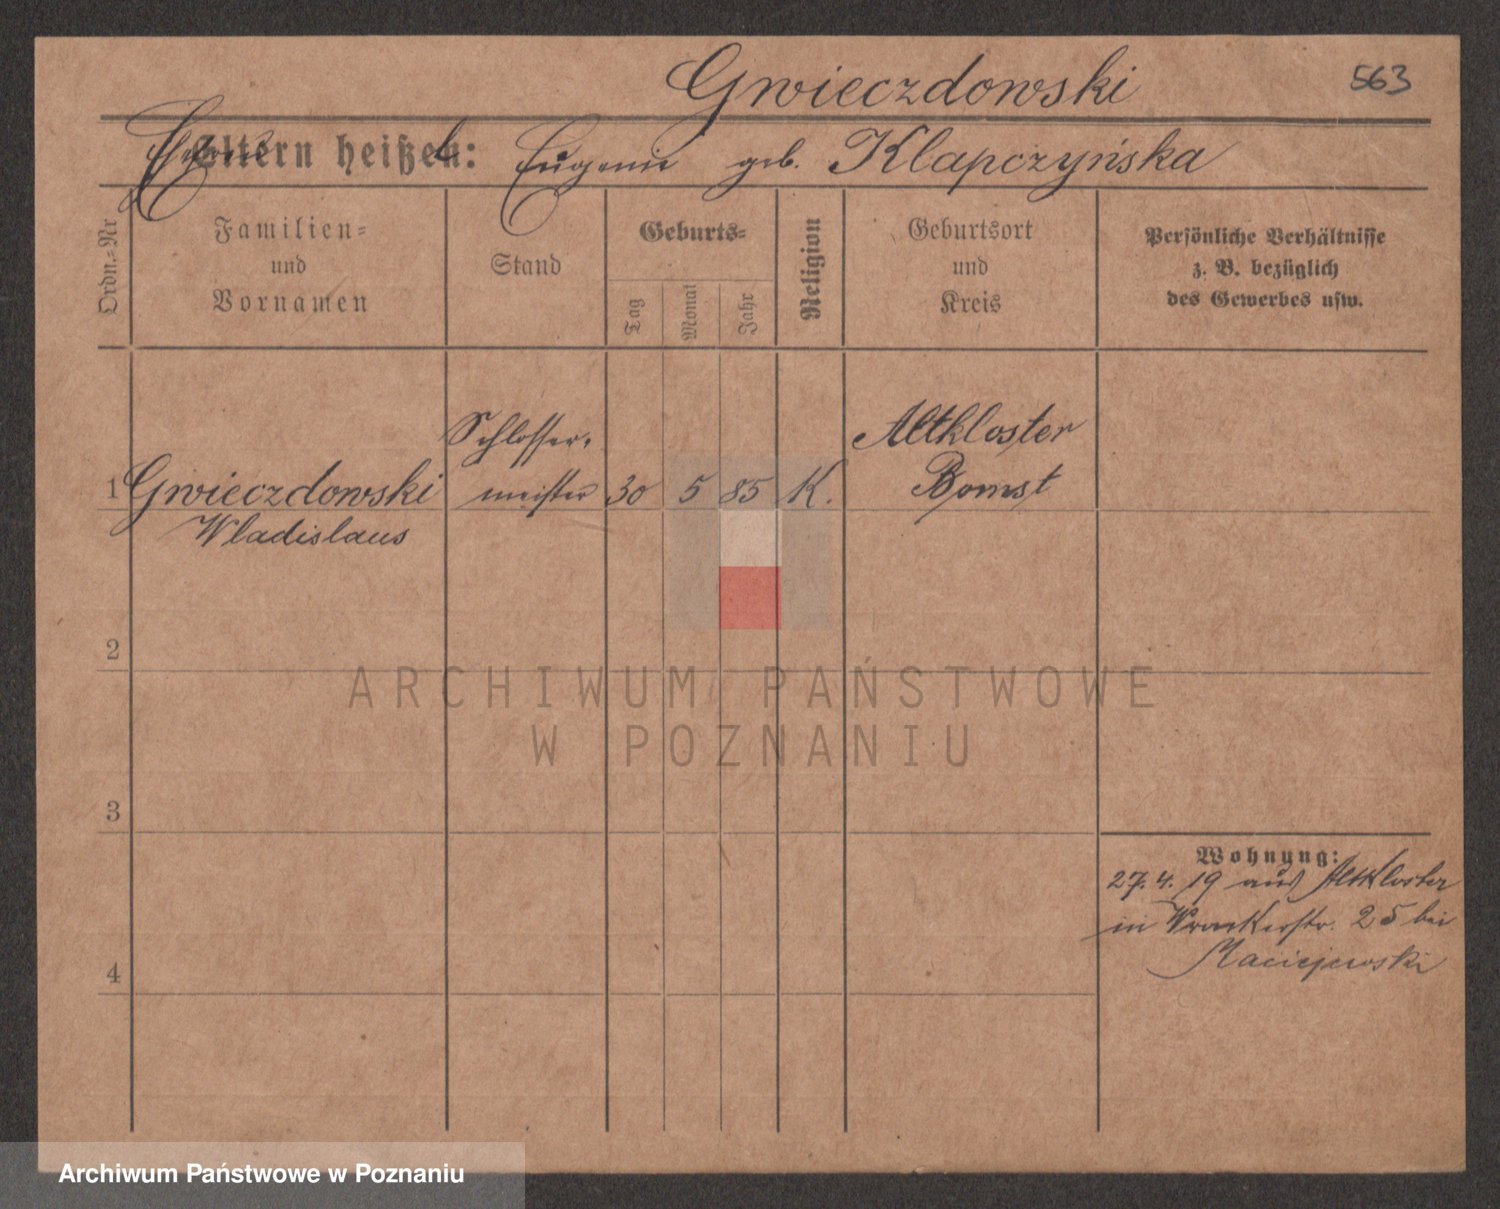 Gwieczdowski
563
Eltern heißen: Eugenie geb. Klapczyńska
Ordn.-Nr
Familien-
und
Vornamen
Stand
Geburts-
Tag
Monat
Jahr
Religion
Geburtsort
und
Kreis
Persönliche Verhältnisse
z. B. bezüglich
des Gewerbes usw.
1
Gwieczdowski
Wladislaus
Schlosser-
meister
30
5
85
K.
Altkloster
Bomst
2
3
4
Wohnung:
27. 4. 19 aus Altkloster
in 25 bei
Maciejewski
ARCHIWUM PAŃSTWOWE
W POZNANIU
Archiwum Państwowe w Poznaniu